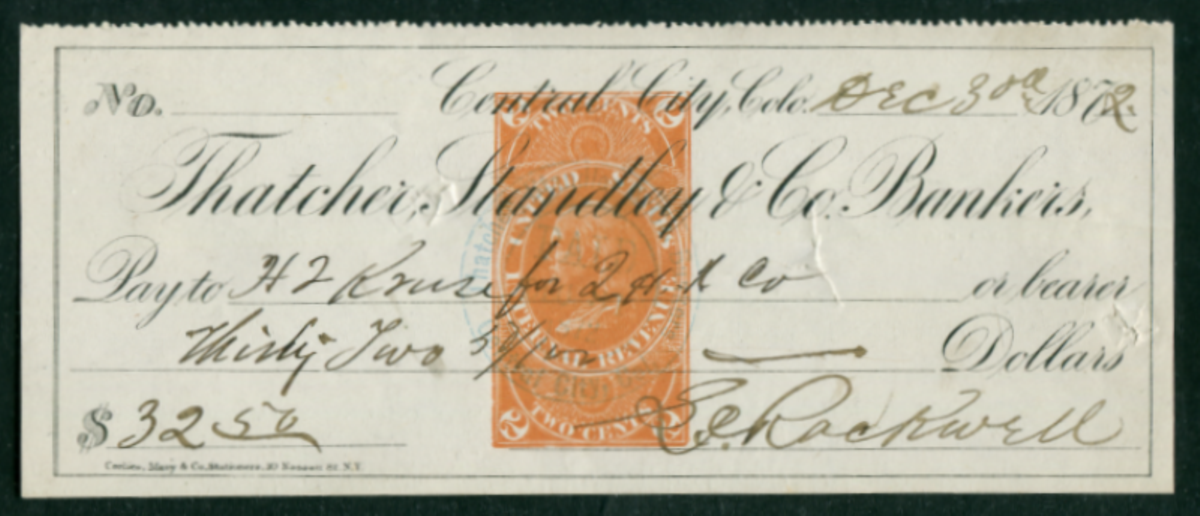 No. Central City, Colo. Dec 30th 1872
Thatcher, Standley & Co. Bankers,
Pay to H Z Kruse for 2 H & Co or bearer
Thirty Two 50/100 Dollars
$ 32 50
E. C. Rockwell
2 TWO CENTS 2
UNITED STATES
INTERNAL REVENUE
2 TWO CENTS 2
& Co. Stationers, 10 Nassau St. N.Y.